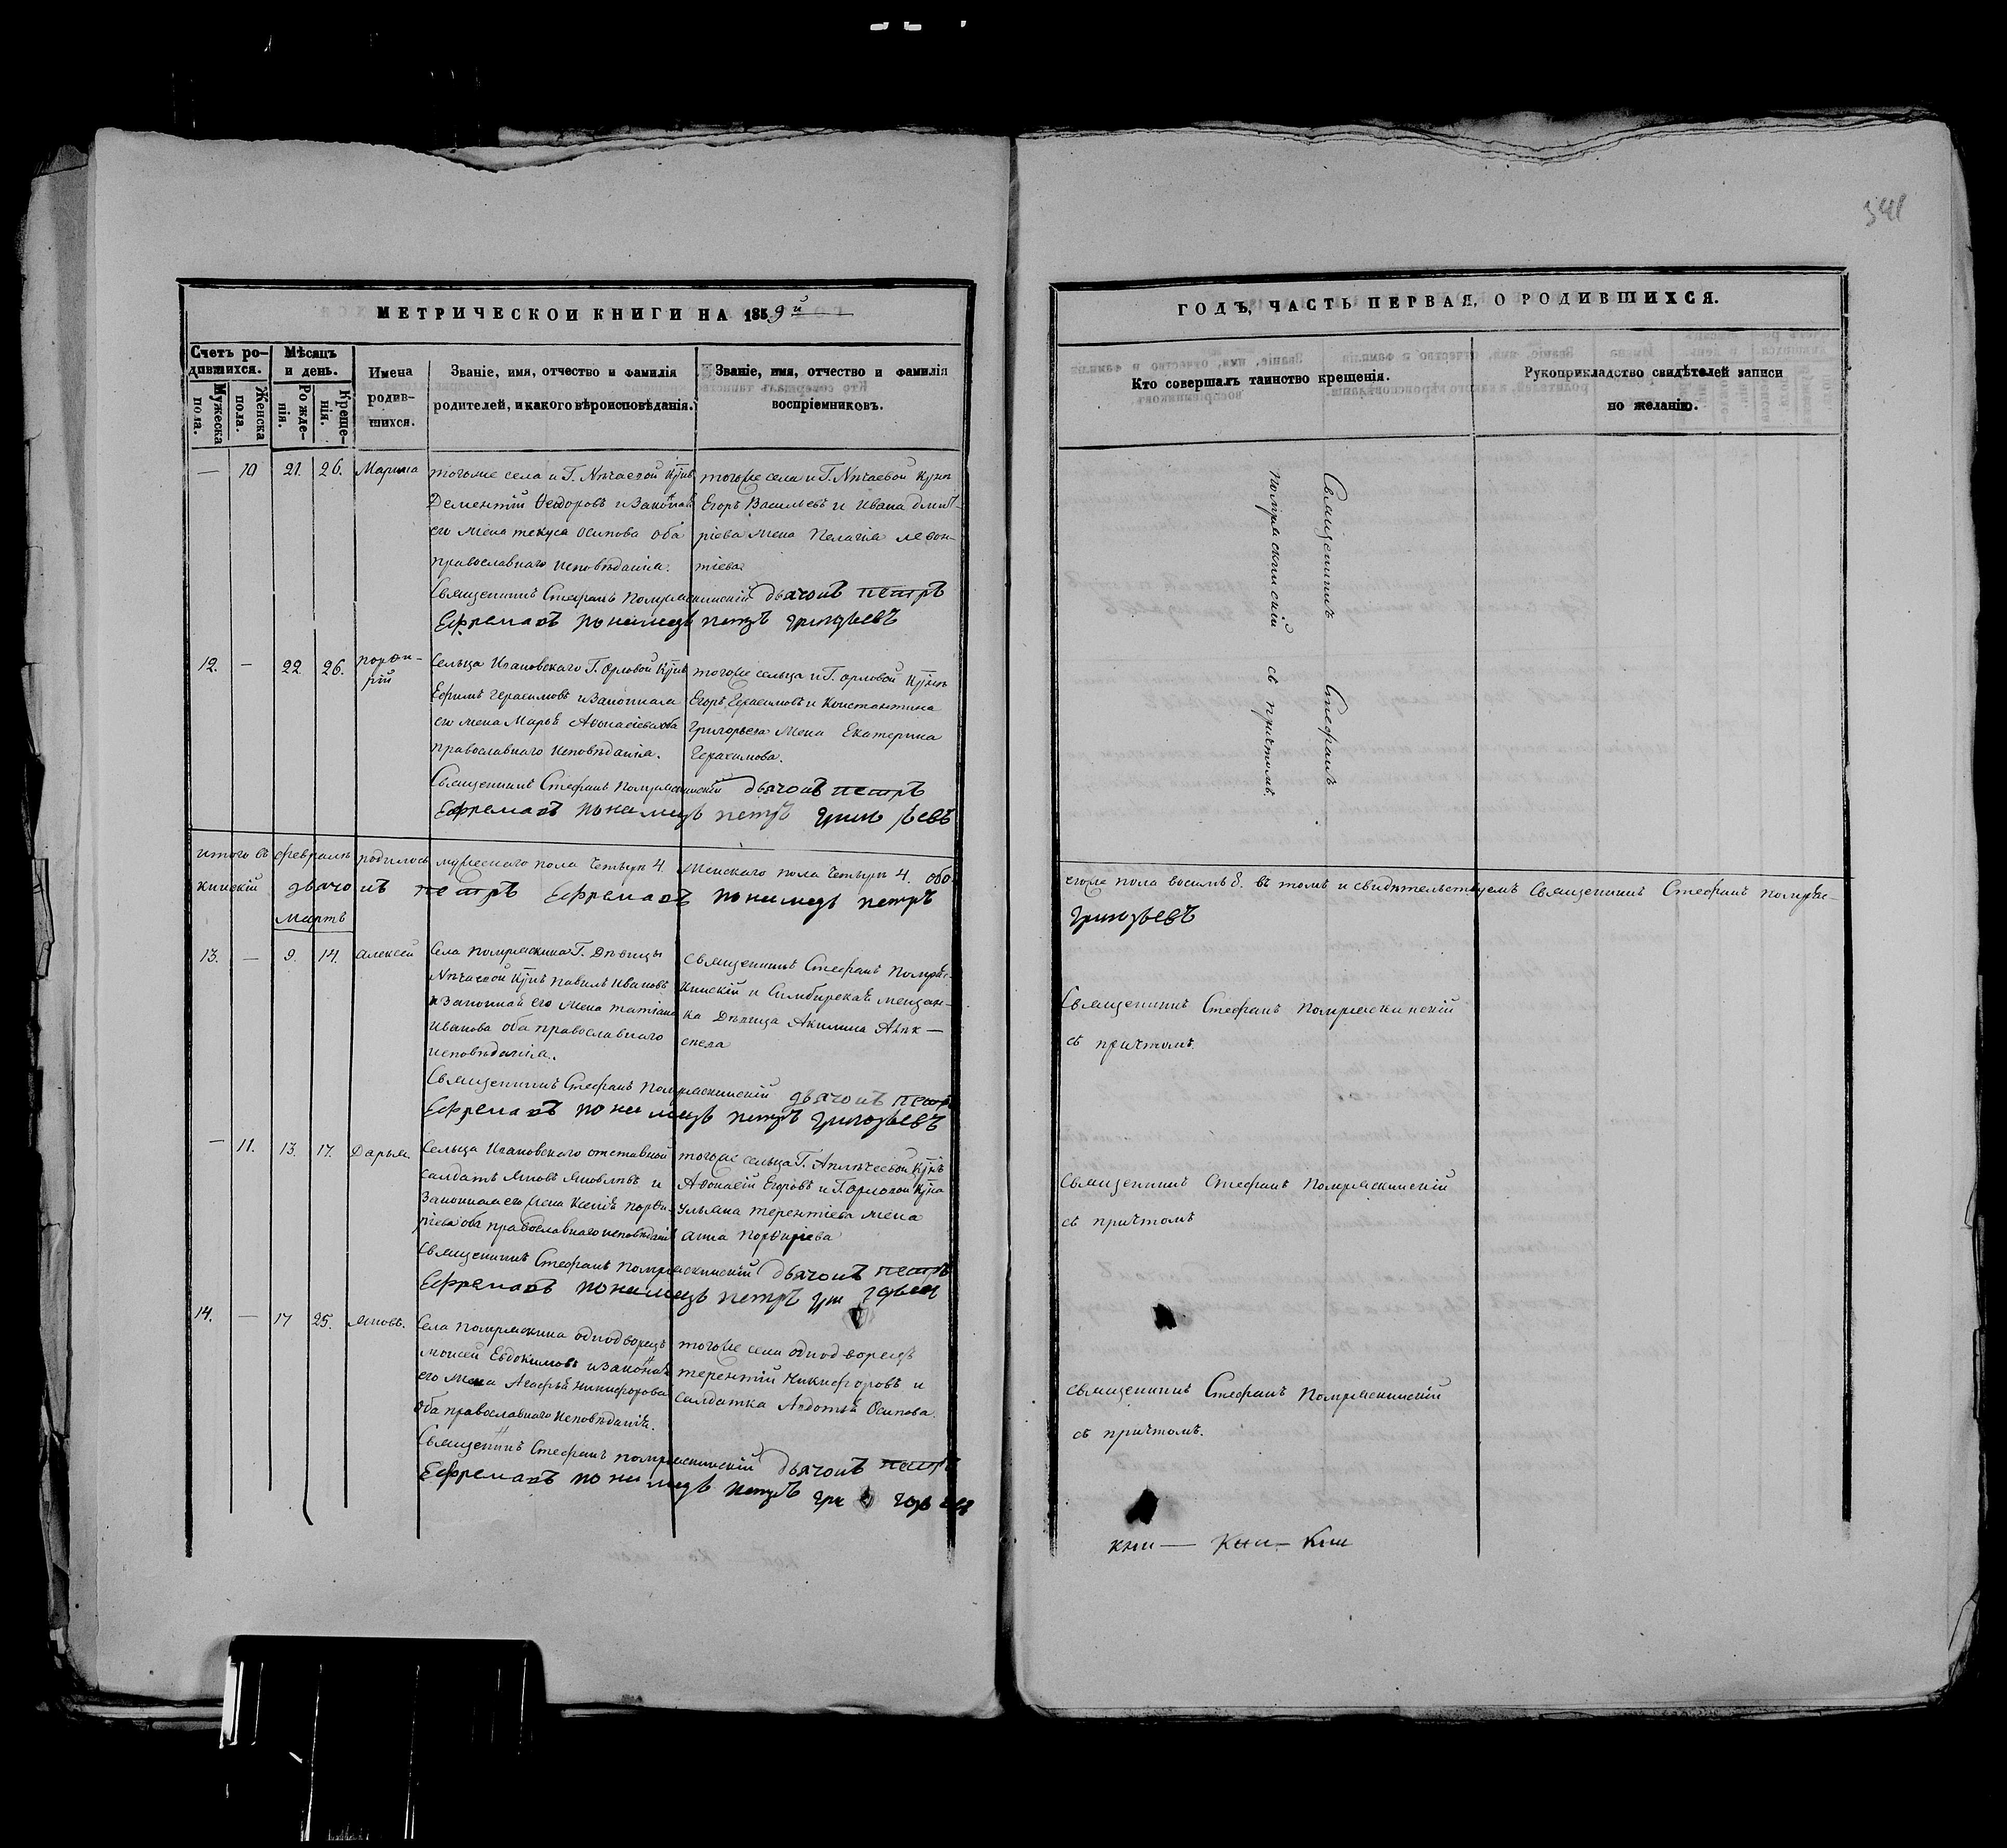 541
МЕТРИЧЕСКОЙ КНИГИ НА 1859й
Счетъ родившихся.
Мужеска пола.
Женска пола.
Мѣсяцъ и день.
Рожденія.
Крещенія.
Имена родившихся.
Званіе, имя, отчество и фамилія
родителей, и какого вѣроисповѣданія.
Званіе, имя, отчество и фамилія
воспріемниковъ.
— 10 21. 26. Марина
тогоже села и Г. Нѣчаевой
Дементій Ѳедоровъ и
его жена Осипова оба
православнаго исповѣданія.
тогоже села и Г. Нѣчаевой
Егоръ Васильевъ и Ивана Дмит-
ріева жена Пелагія Леон-
тіева
Священникъ Стефанъ Помряскинскій дьячокъ петръ
Ефремовъ пономарь петръ григорьевъ
12. — 22 26. порѳи-
рій
Сельца Ивановскаго Г. Орловой
Ефимъ Герасимовъ и законная
его жена Марья Аѳонасіева оба
православнаго исповѣданія.
тогоже сельца и Г. орловой
Егоръ Герасимовъ и Константина
Григорьева жена Екатерина
Герасимова.
Священникъ Стефанъ Помряскинскій дьячокъ петръ
Ефремовъ пономарь петръ григорьевъ
итого въ февралѣ родилось мужескаго пола четыри 4. женскаго пола четыри 4. обо-
кинскій дьячокъ петръ Ефремовъ пономарь петръ
Мартъ
13. — 9. 14. Алексей
Села Помряскина Г. Дѣвицы
Нѣчаевой Павилъ Ивановъ
и законная его жена татіана
Иванова оба православнаго
исповѣданія.
Священникъ Стефанъ Помряс-
кинскій и Симбирская мещан-
ка Дѣвица Акилина
Священникъ Стефанъ Помряскинскій дьячокъ петръ
Ефремовъ пономарь петръ григорьевъ
— 11. 13. 17. Дарья.
Сельца Ивановскаго отставной
салдатъ Яковъ Яковлевъ и
законная его жена Ксенія порѳи-
ріева оба православнаго исповѣданія
тогоже сельца Г.
Аѳонасій Егоровъ и Г. орловой
Ульяна терентіева жена
анна порѳиріева
Священникъ Стефанъ Помряскинскій дьячокъ петръ
Ефремовъ пономарь петръ григорьевъ
14. — 17 25. Яковъ.
Села Помряскина однодворецъ
Моисей Евдокимовъ и законная
его жена Агафья Никифорова
оба православнаго исповѣданія.
тогоже села однодворецъ
терентій Никифоровъ и
салдатка Авдотья Осипова.
Священникъ Стефанъ помряскинскій дьячокъ петръ
Ефремовъ пономарь петръ григорьевъ
ГОДЪ, ЧАСТЬ ПЕРВАЯ, О РОДИВШИХСЯ.
Кто совершалъ таинство крещенія.
Рукоприкладство свидѣтелей записи
по желанію.
Священникъ Стефанъ
Помряскинскій съ причтомъ.
егоже пола восимь 8. въ томъ и свидѣтельствуемъ Священникъ Стефанъ Помряс-
григорьевъ
Священникъ Стефанъ Помряскинскій
съ причтомъ.
Священникъ Стефанъ Помряскинскій
съ причтомъ
Священникъ Стефанъ Помряскинскій
съ причтомъ.
кни — кни — кни